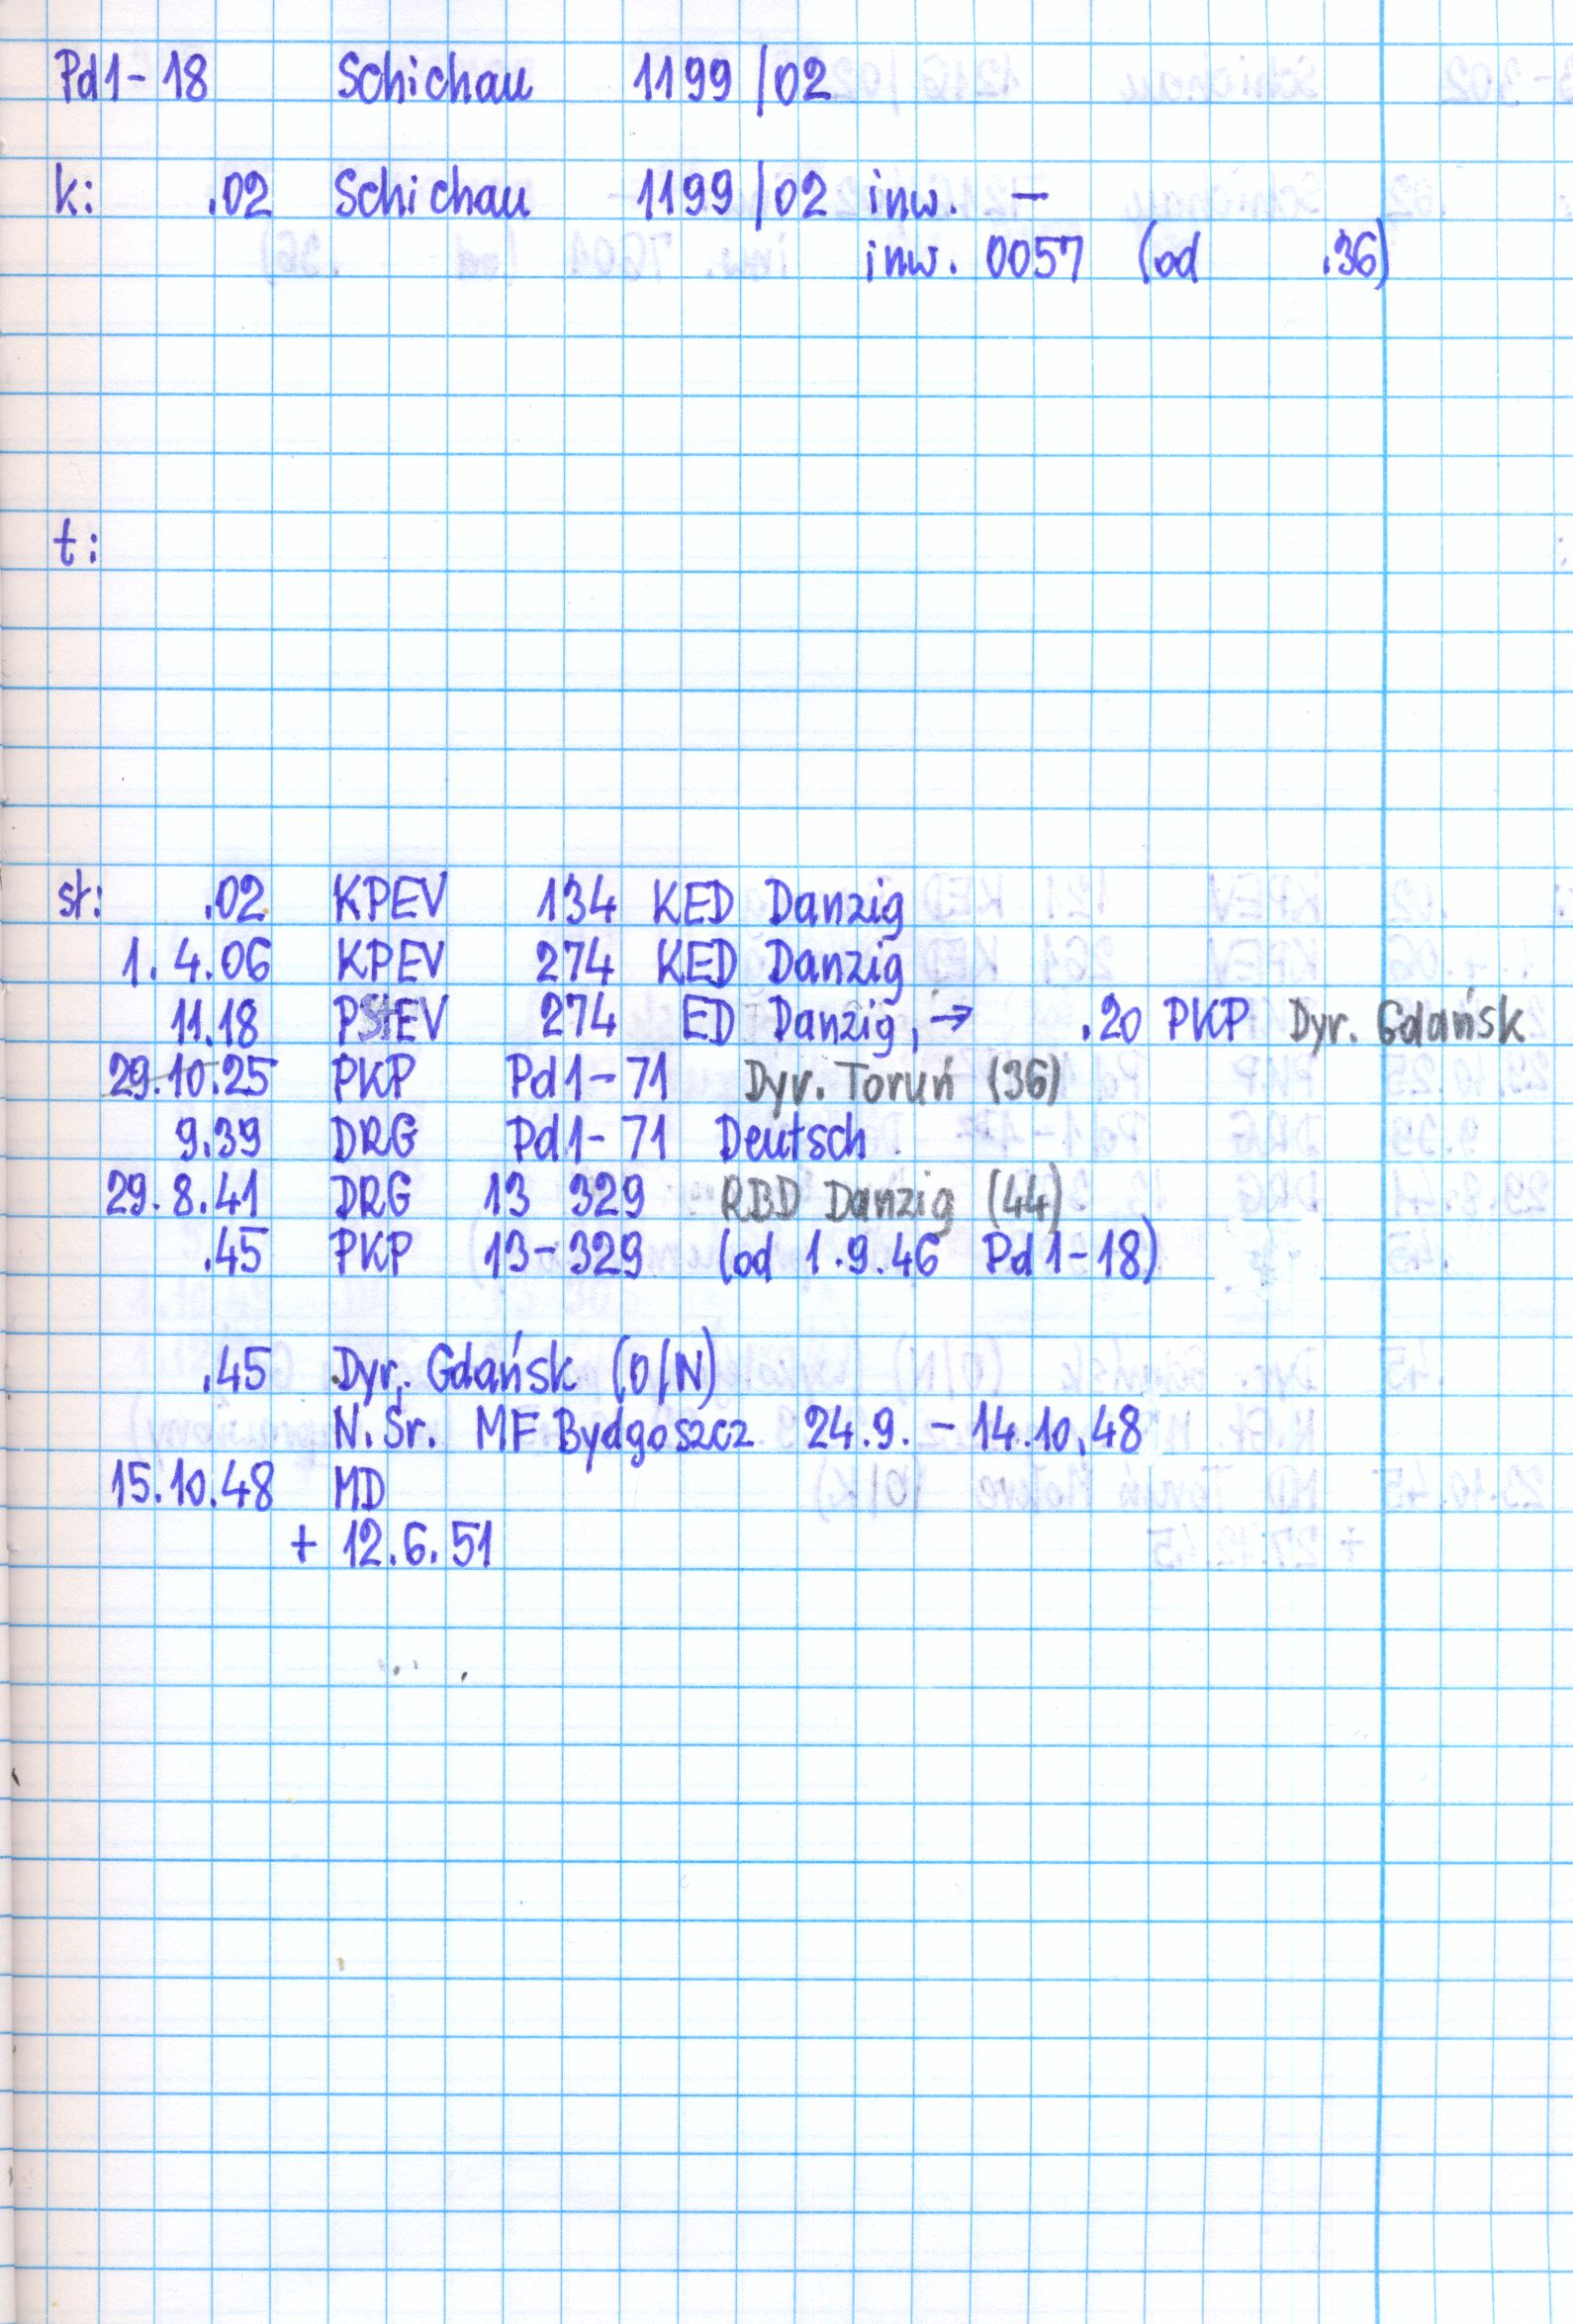 Pd1-18 Schichau 1199/02
k: .02 Schichau 1199/02 inw. —
inw. 0057 (od .36)
t:
st: .02 KPEV 134 KED Danzig
1.4.06 KPEV 274 KED Danzig
11.18 PStEV 274 ED Danzig, → .20 PKP Dyr. Gdańsk
29.10.25 PKP Pd1-71 Dyr. Toruń (36)
9.39 DRG Pd1-71 Deutsch
29.8.41 DRG 13 329 RBD Danzig (44)
.45 PKP 13-329 (od 1.9.46 Pd1-18)
.45 Dyr. Gdańsk (O/N)
N.Śr. MF Bydgoszcz 24.9. - 14.10.48
15.10.48 MD
+ 12.6.51